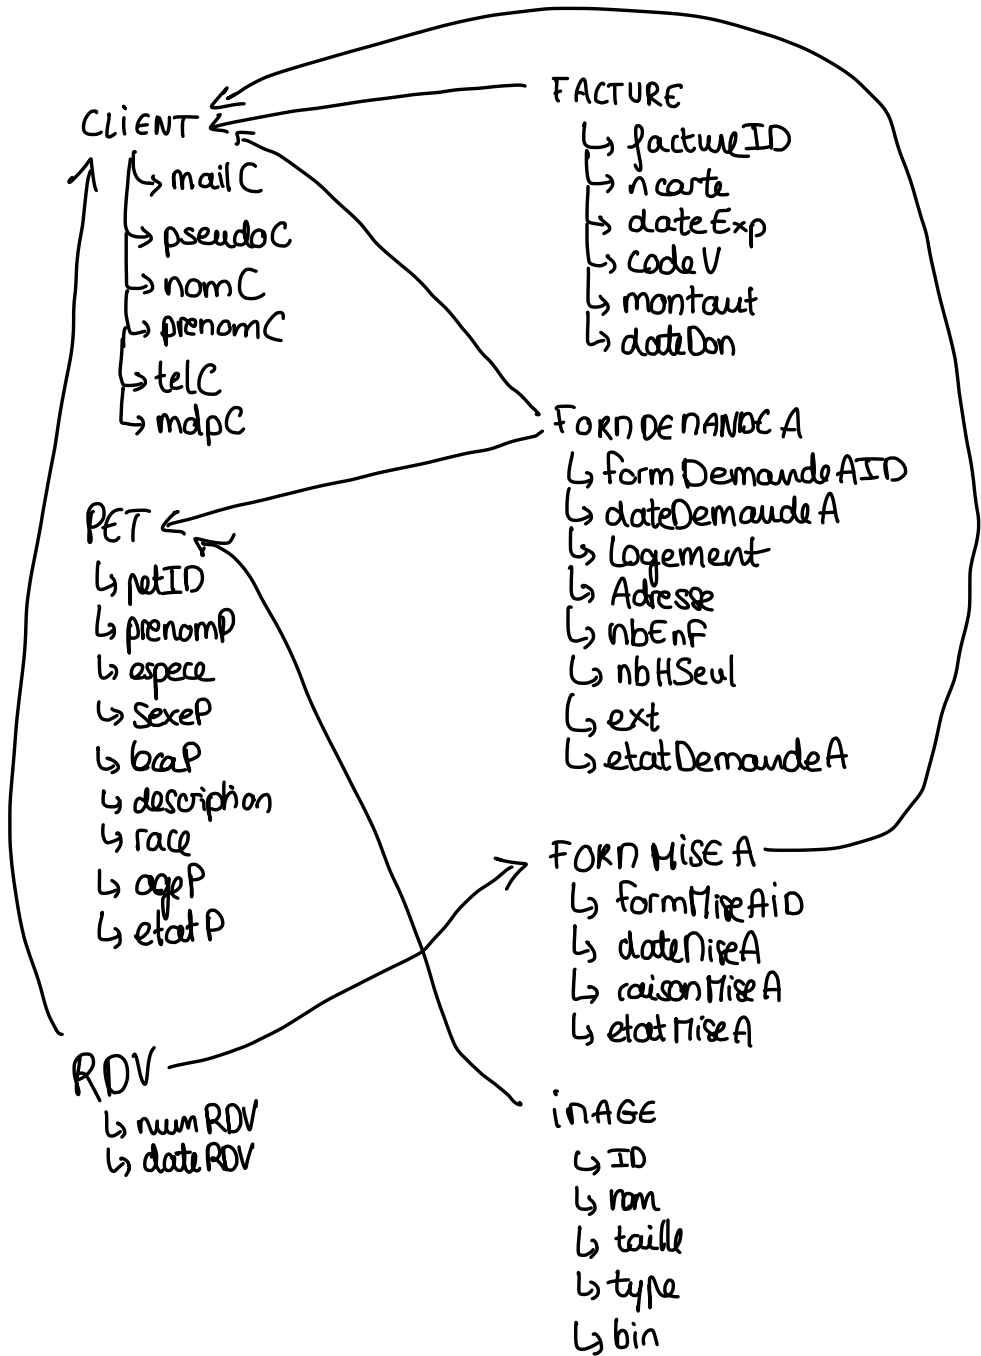 CLIENT
mailC
pseudoC
nomC
prenomC
telC
mdpC
PET
petID
prenomP
espece
sexeP
bcaP
description
race
ageP
etatP
RDV
numRDV
dateRDV
FACTURE
factureID
ncarte
dateExp
codeV
montant
dateDon
FORMDEMANDEA
formDemandeAID
dateDemandeA
Logement
Adresse
nbEnf
nbHSeul
ext
etatDemandeA
FORMMISEA
formMiseAiD
dateMiseA
raisonMiseA
etatMiseA
iMAGE
ID
nom
taille
type
bin